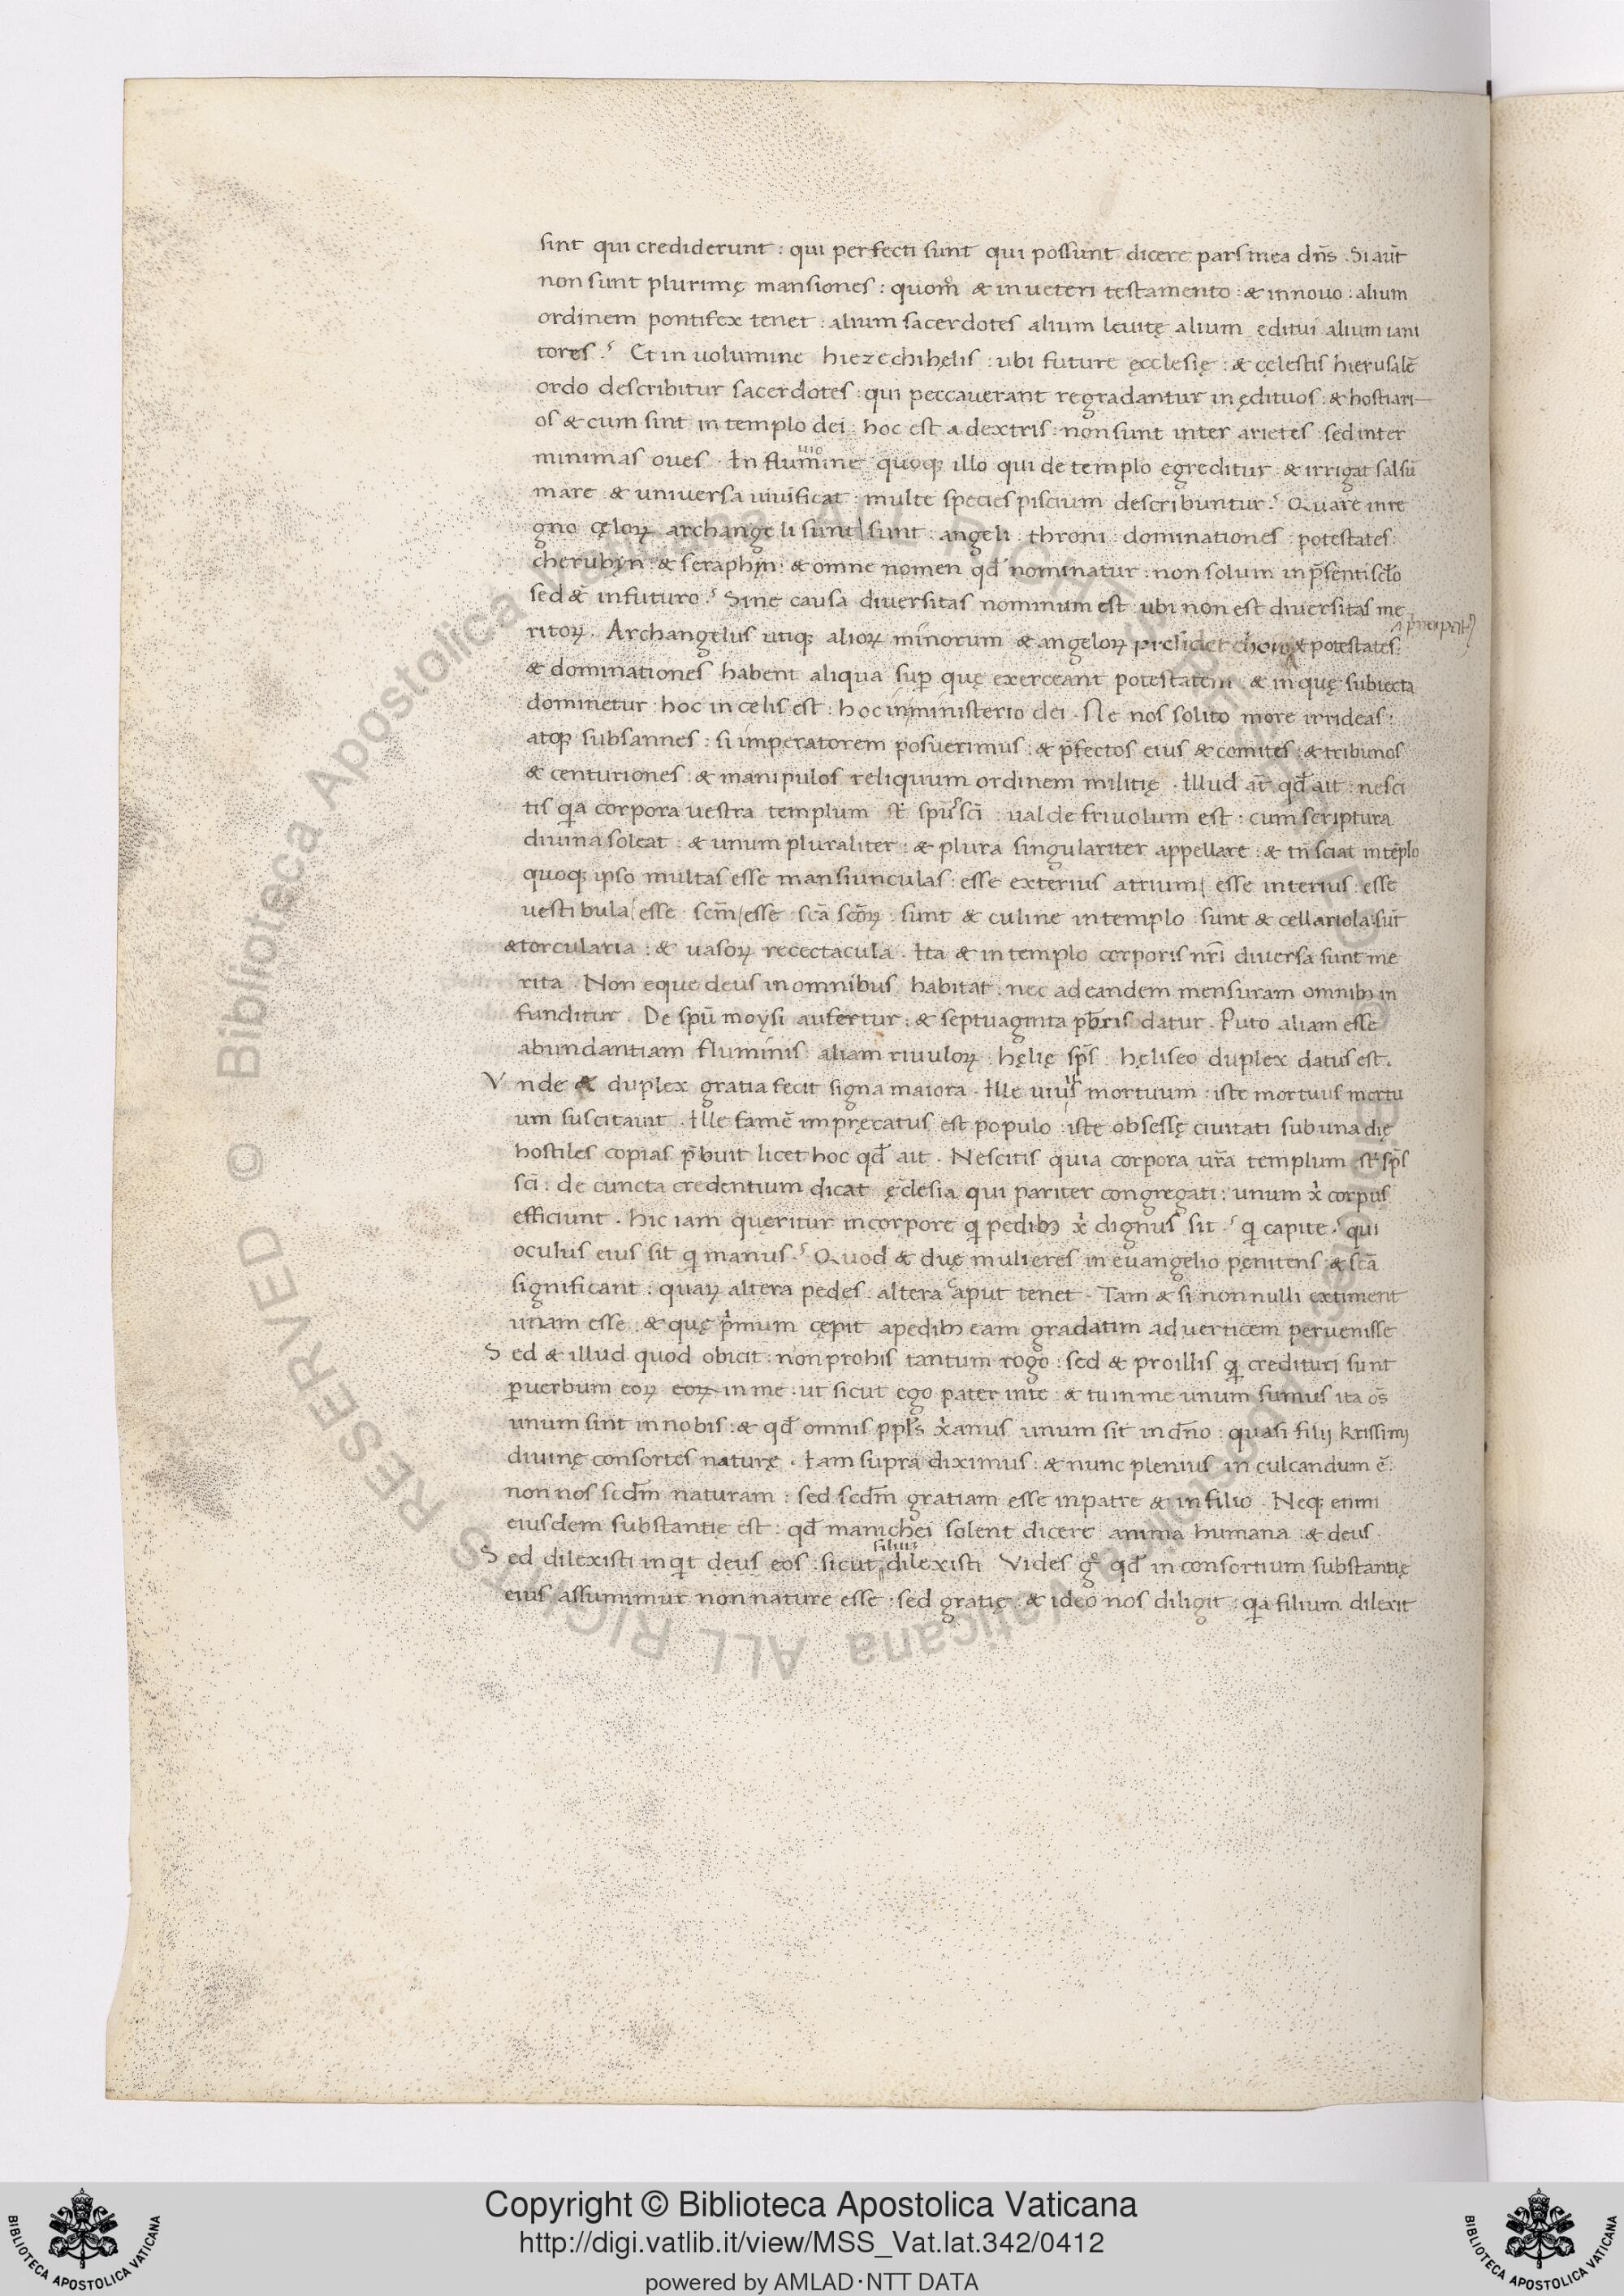 sint qui crediderunt : qui perfecti sunt qui possunt dicere pars mea dn̄s . Si aūt
non sunt plurimę mansiones : quom̊ & in ueteri testamento : & in nouo : alium
ordinem pontifex tenet : alium sacerdotes alium leuitę alium editui alium iani
tores . Et in uolumine hiezechihelis : ubi future ęcclesię : & cęlestis hierusalē
ordo describitur sacerdotes : qui peccauerant regradantur in ędituos : & hostiari
os & cum sint in templo dei : hoc est a dextris : non sunt inter arietes sed inter
minimas oues . In flumine quoq; illo qui de templo egreditur : & irrigat salsū
mare : & universa uiuificat : multe species piscium describuntur . Quare in re
gno cęloꝝ archangeli sunt sunt : angeli throni : dominationes : potestates :
cherubyn : & seraphyn : & omne nomen qd̄ nominatur : non solum in p̄senti sclo
sed & in futuro . Sine causa diversitas nominum est : ubi non est diversitas me
principat9
ritoꝝ . Archangelus utiq; alioꝝ minorum & angeloꝝ & potestates :
& dominationes habent aliqua sup̱ quę exerceant potestatem & in quę subiecta
dominetur hoc in celis est : hoc in ministerio dei . Ne nos solito more irrideas :
atq; subsannes : si imperatorem posuerimus : & p̄fectos eius & comites : & tribunos
& centuriones : & manipulos reliquum ordinem militię . Illud at̄ qd̄ ait : nesci
tis qa corpora uestra templum st̄ spūs sci : ualde friuolum est : cum scriptura
diuina soleat : & unum pluraliter : & plura singulariter appellare : & tn̄ sciat in tēplo
quoq; ipso multas esse mansiunculas : esse exterius atrium esse interius : esse
uestibula esse scm̄ esse scā scōꝝ : sunt & culine in templo sunt & cellariola : sūt
& torcularia : & uasoꝝ recectacula . Ita & in templo corporis nr̄i diuersa sunt me
rita . Non eque deus in omnibus habitat : nec ad eandem mensuram omnibꝫ in
funditur . De spū moysi aufertur : & septuaginta pb̄ris datur . Puto aliam esse
abundantiam fluminis aliam riuuloꝝ . hęlię sps̄ hęliseo duplex datus est .
Vnde & duplex gratia fecit signa maiora . Ille uiuus mortuum : iste mortuus mortu
um suscitauit . Ille famē impręcatus est populo : iste obsessę ciuitati sub una dię
hostiles copias p̄buit licet hoc qd̄ ait . Nescitis quia corpora ur̄a templum st̄ sps̄
sci : de cuncta credentium dicat ęclesia qui pariter congregati : unum x̄ corpus
efficiunt . hic iam queritur in corpore q pedibꝫ x̄ dignus sit . q capite . qui
oculus eius sit q manus . Quod & duę mulieres in euangelio pęnitens & scā
significant : quaꝝ altera pedes . altera caput tenet . Tam & si non nulli extiment
unam esse . & quę p̄mum cępit a pedibꝫ eam gradatim ad uerticem peruenisse
Sed & illud quod obicit : non pro his tantum rogo : sed & pro illis q credituri sunt
p̱ uerbum eoꝝ eoꝝ in me . ut sicut ego pater in te : & tu in me unum sumus ita os̄
unum sint in nobis : & qd̄ omnis ppl̄s x̄anus unum sit in dn̄o : quasi filij krissimi
diuinę consortes naturę . Iam supra diximus : & nunc plenius in culcandum ē :
non nos scdm̄ naturam : sed scdm̄ gratiam esse in patre & in filio . Neq; enim
eiusdem substantię est : qd̄ manichei solent dicere anima humana : & deus
filiū
Sed dilexisti inqt deus eos : sicut dilexisti Vides g̊ qd̄ in consortium substantię
eius assumimur non nature esse : sed gratię : & ideo nos diligit : qa filium dilexit
Biblioteca Apostolica Vaticana ALL RIGHTS RESERVED ©
Copyright © Biblioteca Apostolica Vaticana
http://digi.vatlib.it/view/MSS_Vat.lat.342/0412
powered by AMLAD·NTT DATA
BIBLIOTECA APOSTOLICA VATICANA
BIBLIOTECA APOSTOLICA VATICANA